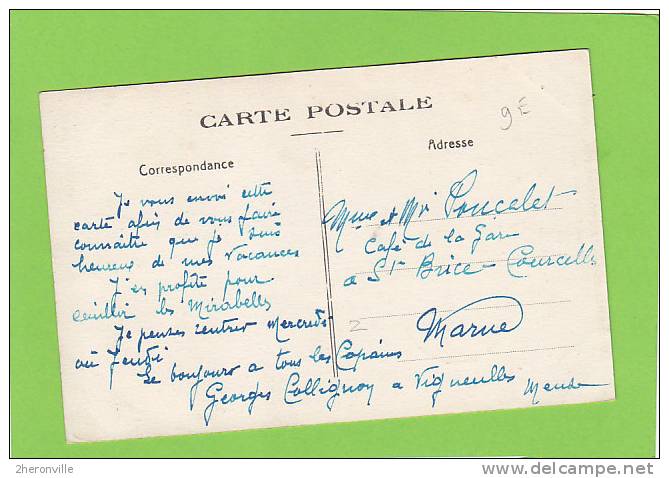 CARTE POSTALE
9E
Correspondance
Je vous envoi cette
carte afin de vous faire
connaitre que je suis
heureux de mes vacances
J'es profité pour
ceuillir les Mirabelles
Je penses rentrer Mercredi
ou Jeudi
Le bonjours a tous les Copains
Georges Collignon a Vigneulles Meuse
Adresse
Mme et Mr Ponçelet
Café de la Gare
a St Brice Courcelles
2
Marne
2heronville
delcampe.net